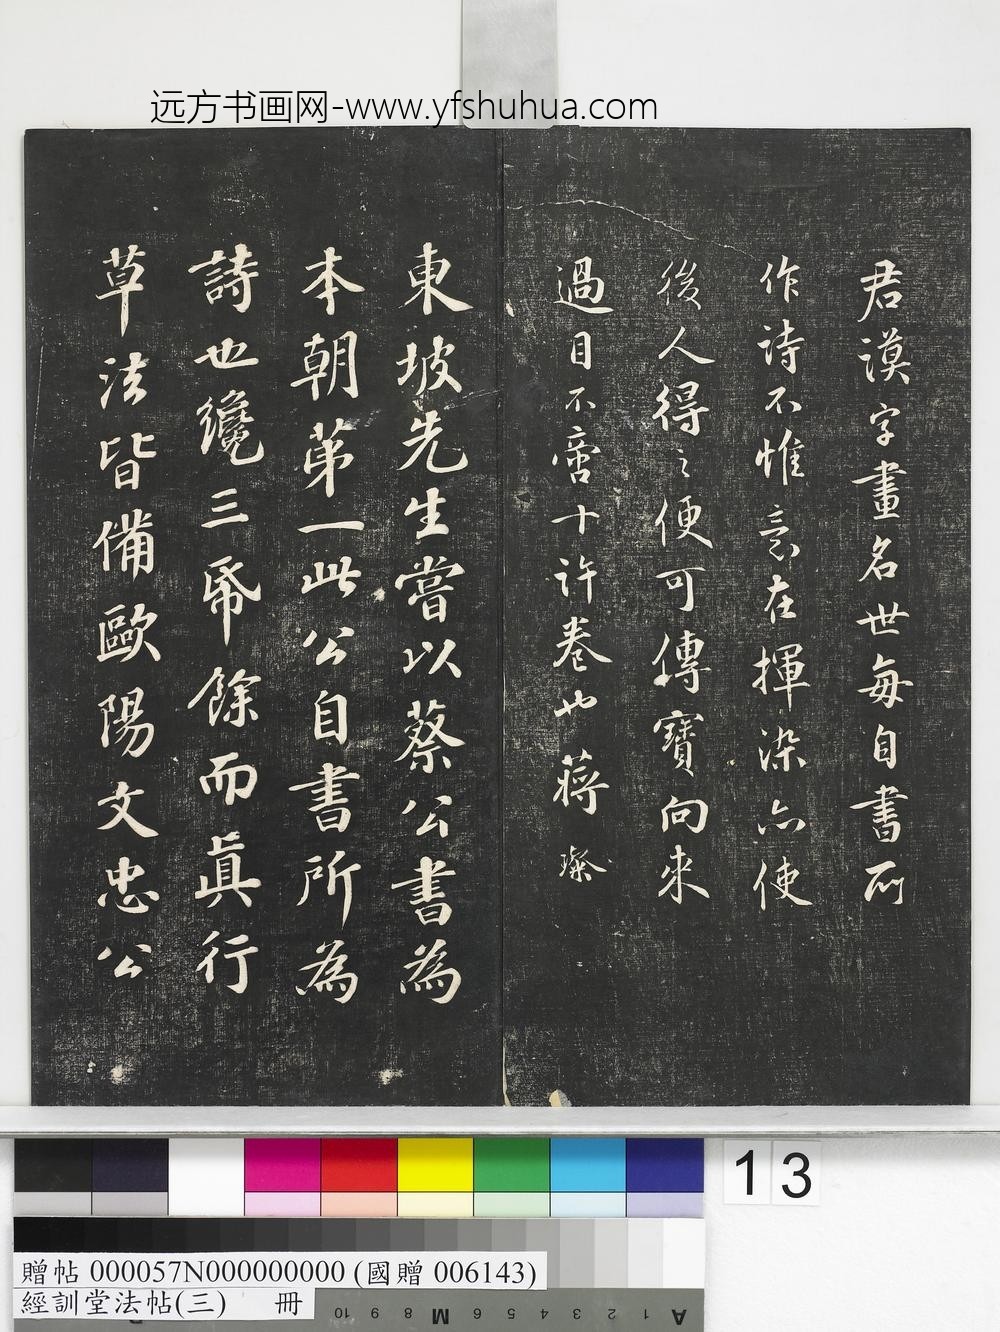 远方书画网-www.yfshuhua.com
君謨字畫名世每自書所
作詩不惟意在揮染亦使
後人得之便可傳寶向來
過目不啻十許卷也蔣璨
東坡先生嘗以蔡公書為
本朝第一此公自書所為
詩也纔三帋餘而真行
草法皆備歐陽文忠公
13
贈帖 000057N000000000 (國贈 006143)
經訓堂法帖(三) 冊
A 1 2 3 4 5 6 M 8 9 10